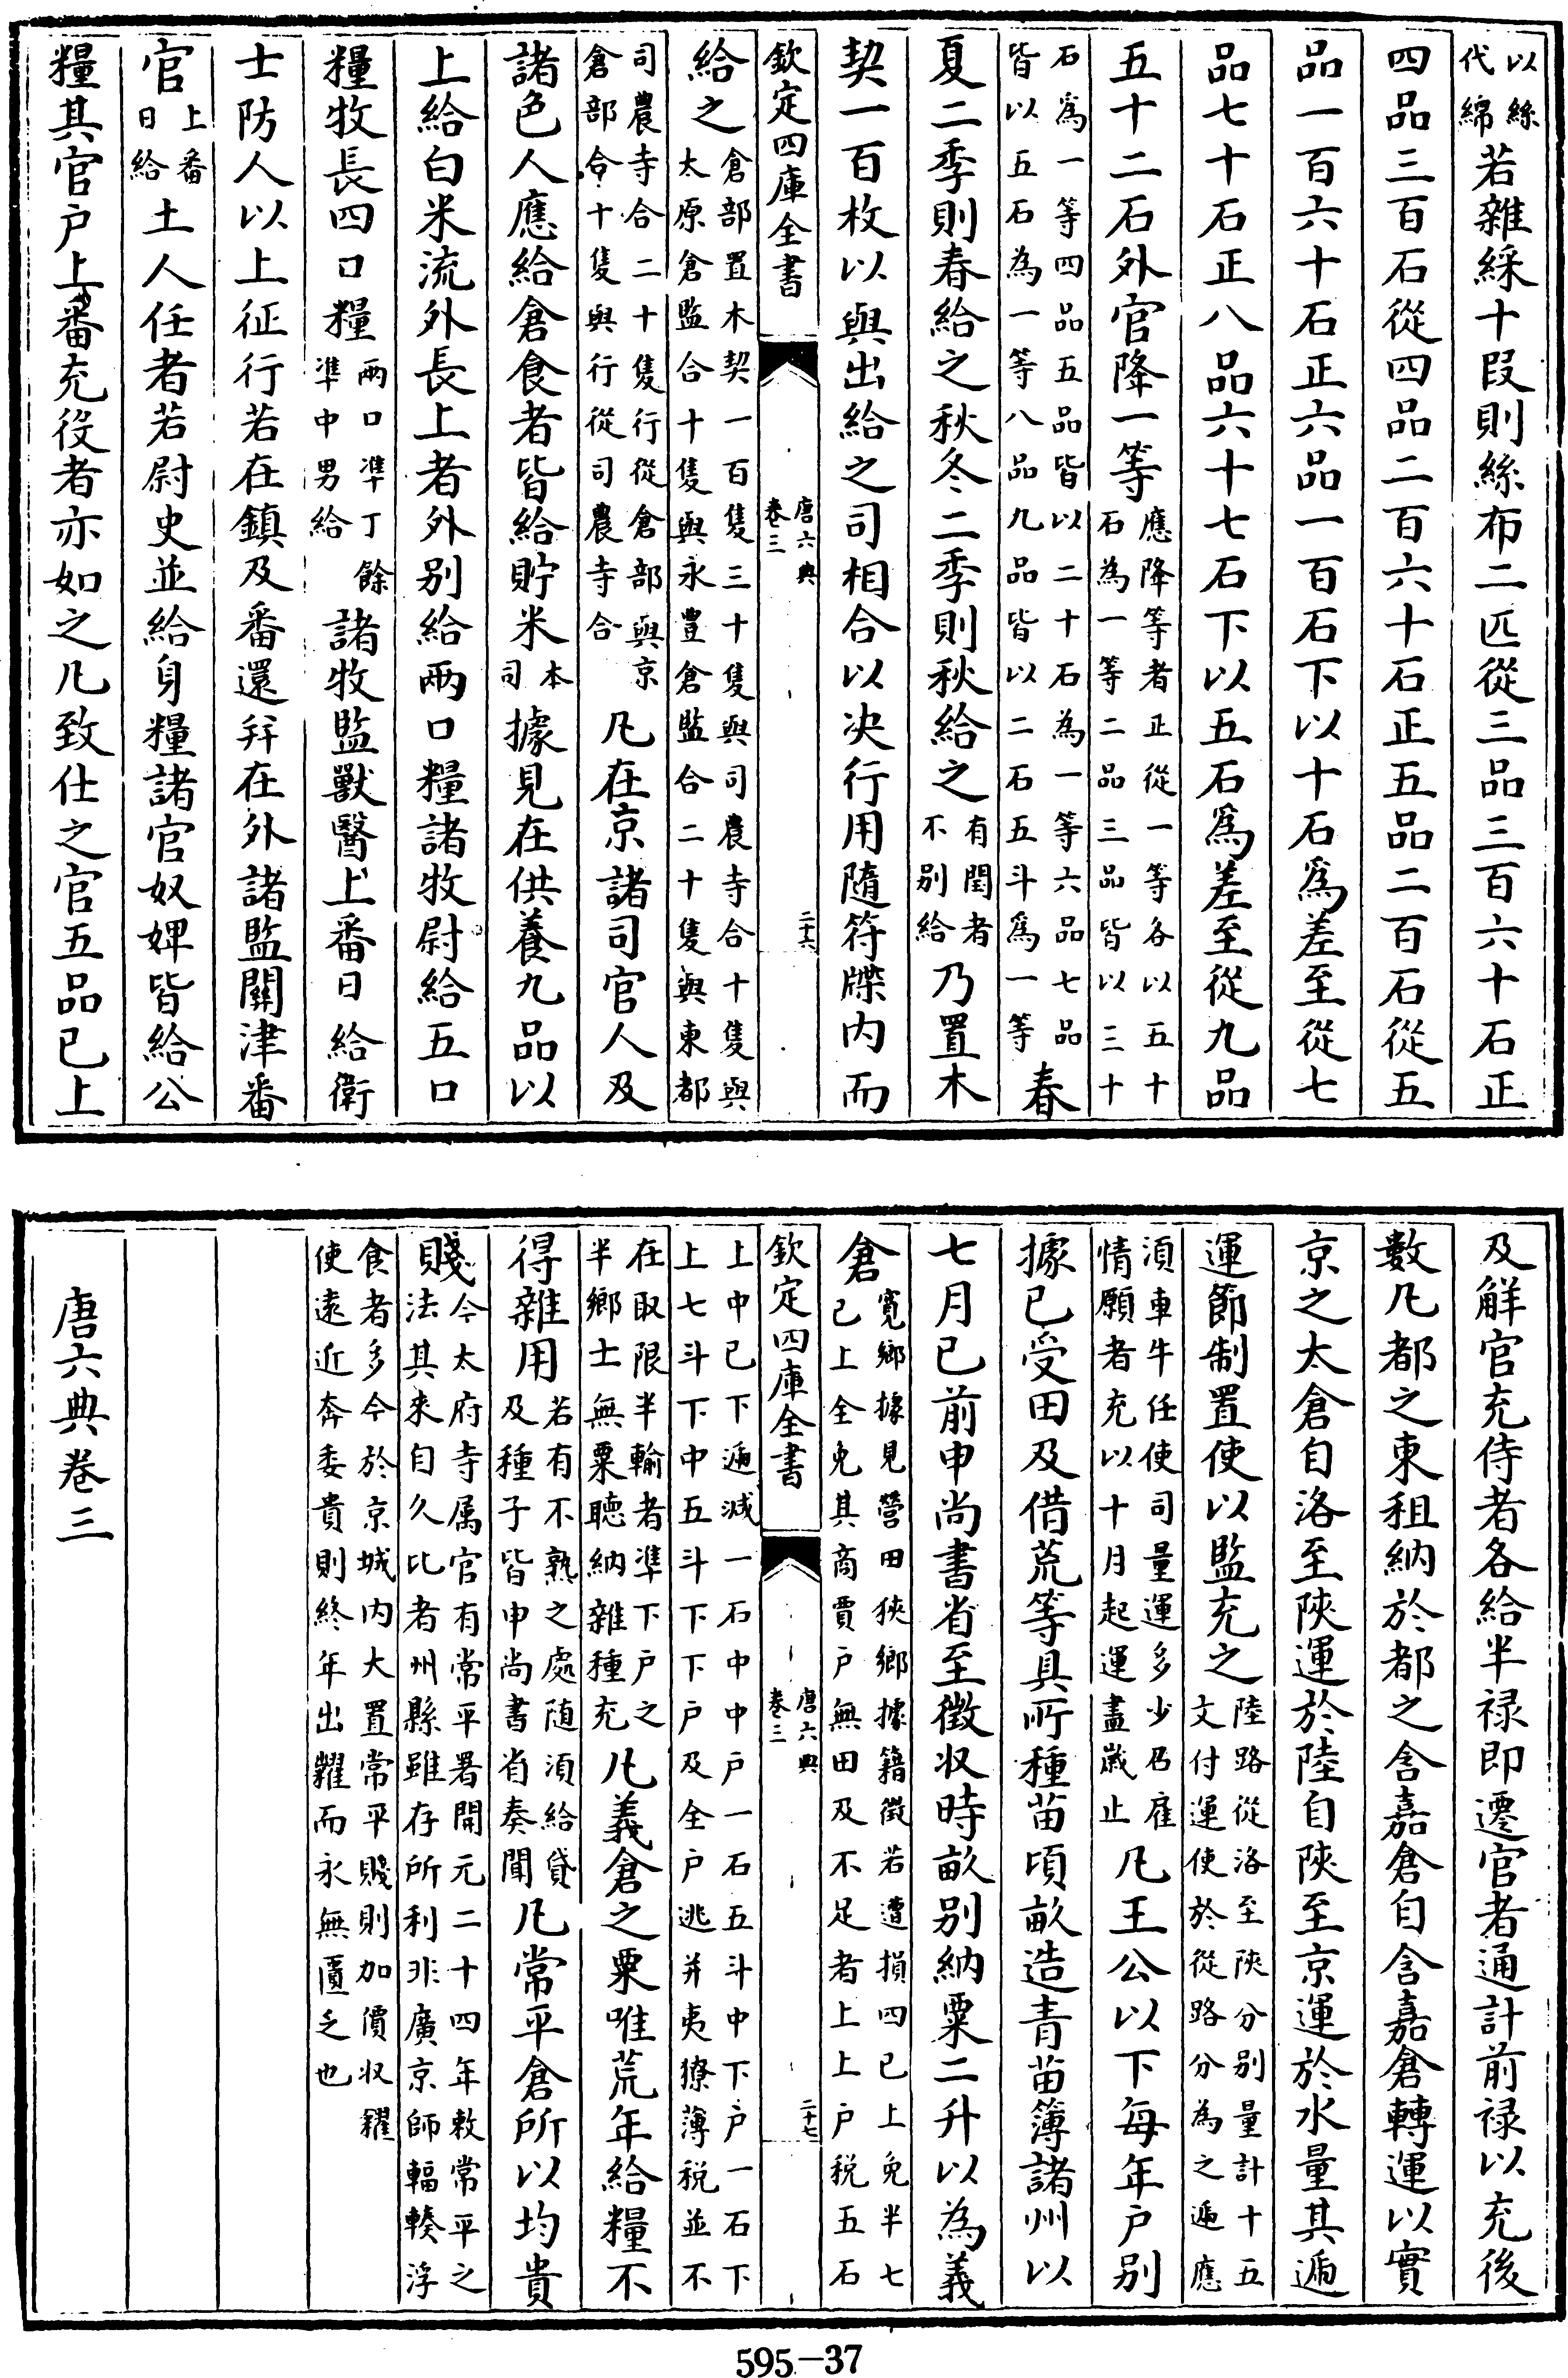 以絲代綿若雜綵十段則絲布二匹從三品三百六十石正
四品三百石從四品二百六十石正五品二百石從五
品一百六十石正六品一百石下以十石爲差至從七
品七十石正八品六十七石下以五石爲差至從九品
五十二石外官降一等應降等者正從一等各以五十石為一等二品三品皆以三十
石爲一等四品五品皆以二十石為一等六品七品皆以五石為一等八品九品皆以二石五斗爲一等春
夏二季則春給之秋冬二季則秋給之有閏者不别給乃置木
契一百枚以與出給之司相合以决行用隨符牒内而
欽定四庫全書 唐六典卷三 二十六
給之倉部置木契一百隻三十隻與司農寺合十隻與太原倉監合十隻與永豐倉監合二十隻與東都
司農寺合二十隻行從倉部與京倉部合十隻與行從司農寺合凡在京諸司官人及
諸色人應給倉食者皆給貯米本司據見在供養九品以
上給白米流外長上者外别給兩口糧諸牧尉給五口
糧牧長四口糧兩口凖丁餘凖中男給諸牧監獸醫上番日給衛
士防人以上征行若在鎮及番還幷在外諸監關津番
官上番日給土人任者若尉史並給身糧諸官奴婢皆給公
糧其官户上番充役者亦如之凡致仕之官五品已上
及解官充侍者各給半禄即遷官者通計前禄以充後
數凡都之東租納於都之含嘉倉自含嘉倉轉運以實
京之太倉自洛至陜運於陸自陜至京運於水量其遞
運節制置使以監充之陸路從洛至陜分别量計十五文付運使於從路分為之遞應
須車牛任使司量運多少召雇情願者充以十月起運盡歲止凡王公以下每年户别
據已受田及借荒等具所種苗頃畝造青苗簿諸州以
七月已前申尚書省至徴收時畝别納粟二升以為義
倉寛鄉據見營田狹鄉據籍徴若遭損四已上免半七已上全免其商賈户無田及不足者上上户税五石
欽定四庫全書 唐六典卷三 二十七
上中已下遞減一石中中户一石五斗中下户一石下上七斗下中五斗下下户及全户逃并夷獠薄税並不
在取限半輸者凖下户之半鄉土無粟聽納雜種充凡義倉之粟唯荒年給糧不
得雜用若有不熟之處随須給貸及種子皆申尚書省奏聞凡常平倉所以均貴
賤今太府寺属官有常平署開元二十四年敕常平之法其来自久比者州縣雖存所利非廣京師輻輳浮
食者多今於京城内大置常平賤則加價收糴使遠近奔委貴則終年出糶而永無匱乏也
唐六典卷三
595-37